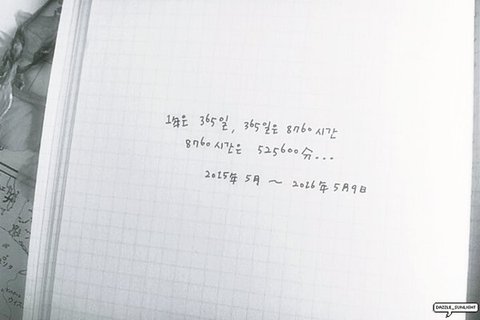 1年은 365일, 365일은 8760시간
8760시간은 525600分...
2015年 5月 ~ 2016年 5月9日
DAZZLE_SUNLIGHT